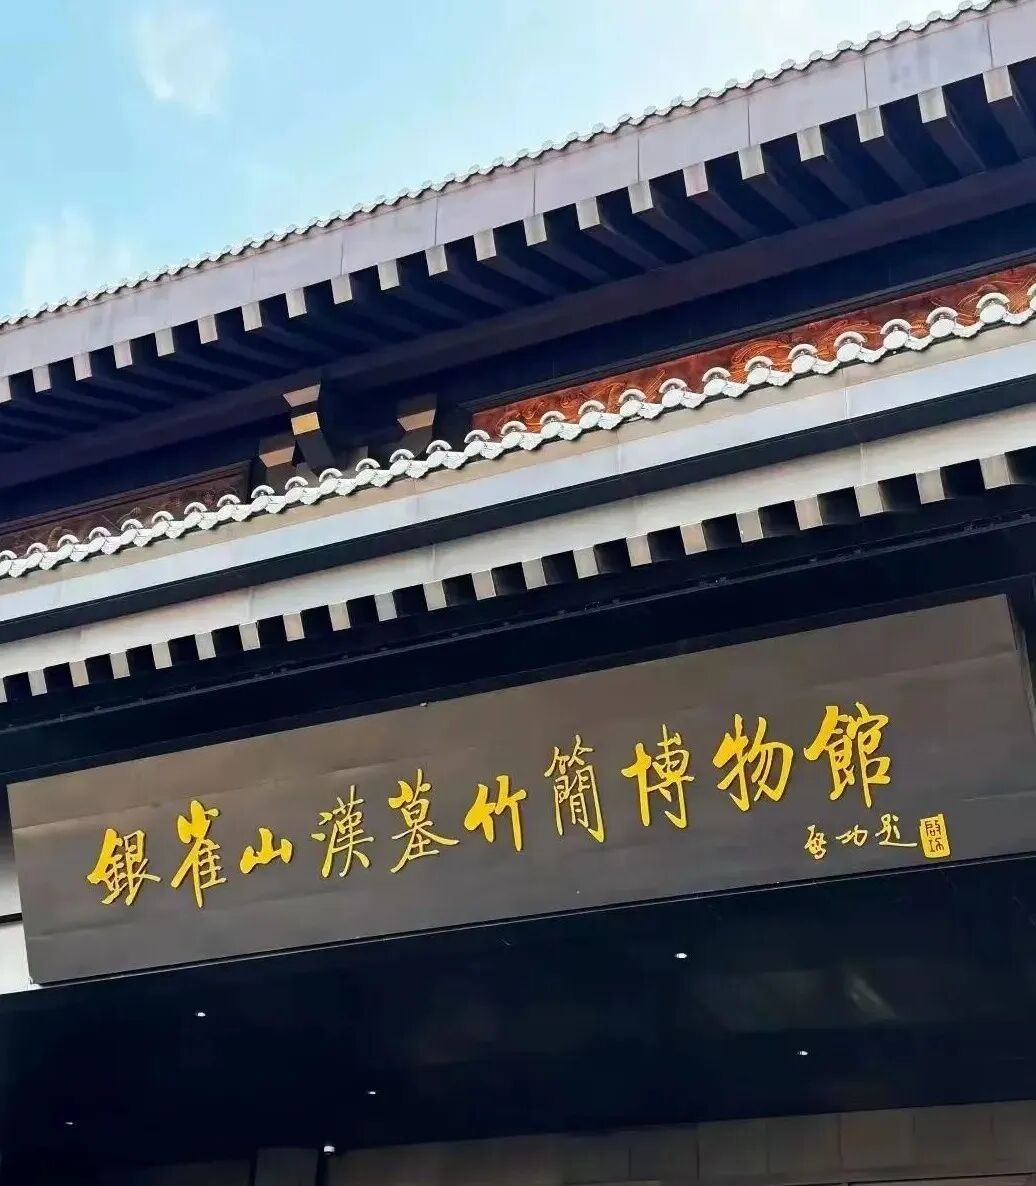 銀雀山漢墓竹簡博物館
啓功題
啓功